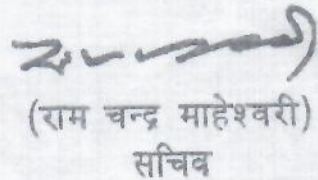 (राम चन्द्र माहेश्वरी)
सचिव